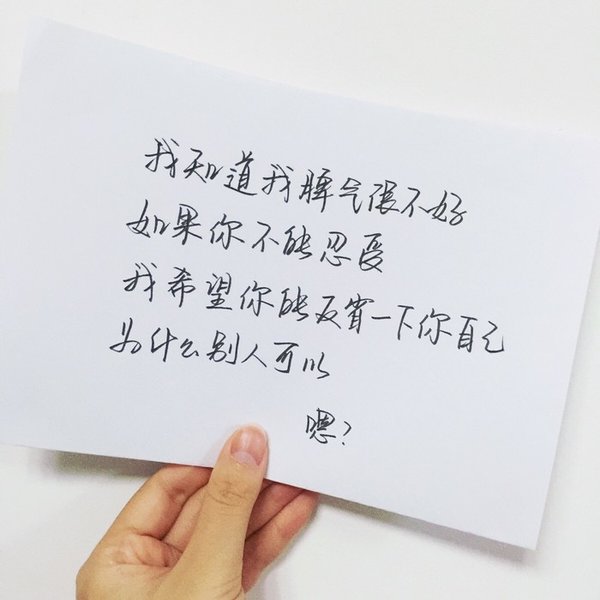 我知道我脾气很不好
如果你不能忍受
我希望你能反省一下你自己
为什么别人可以
嗯?